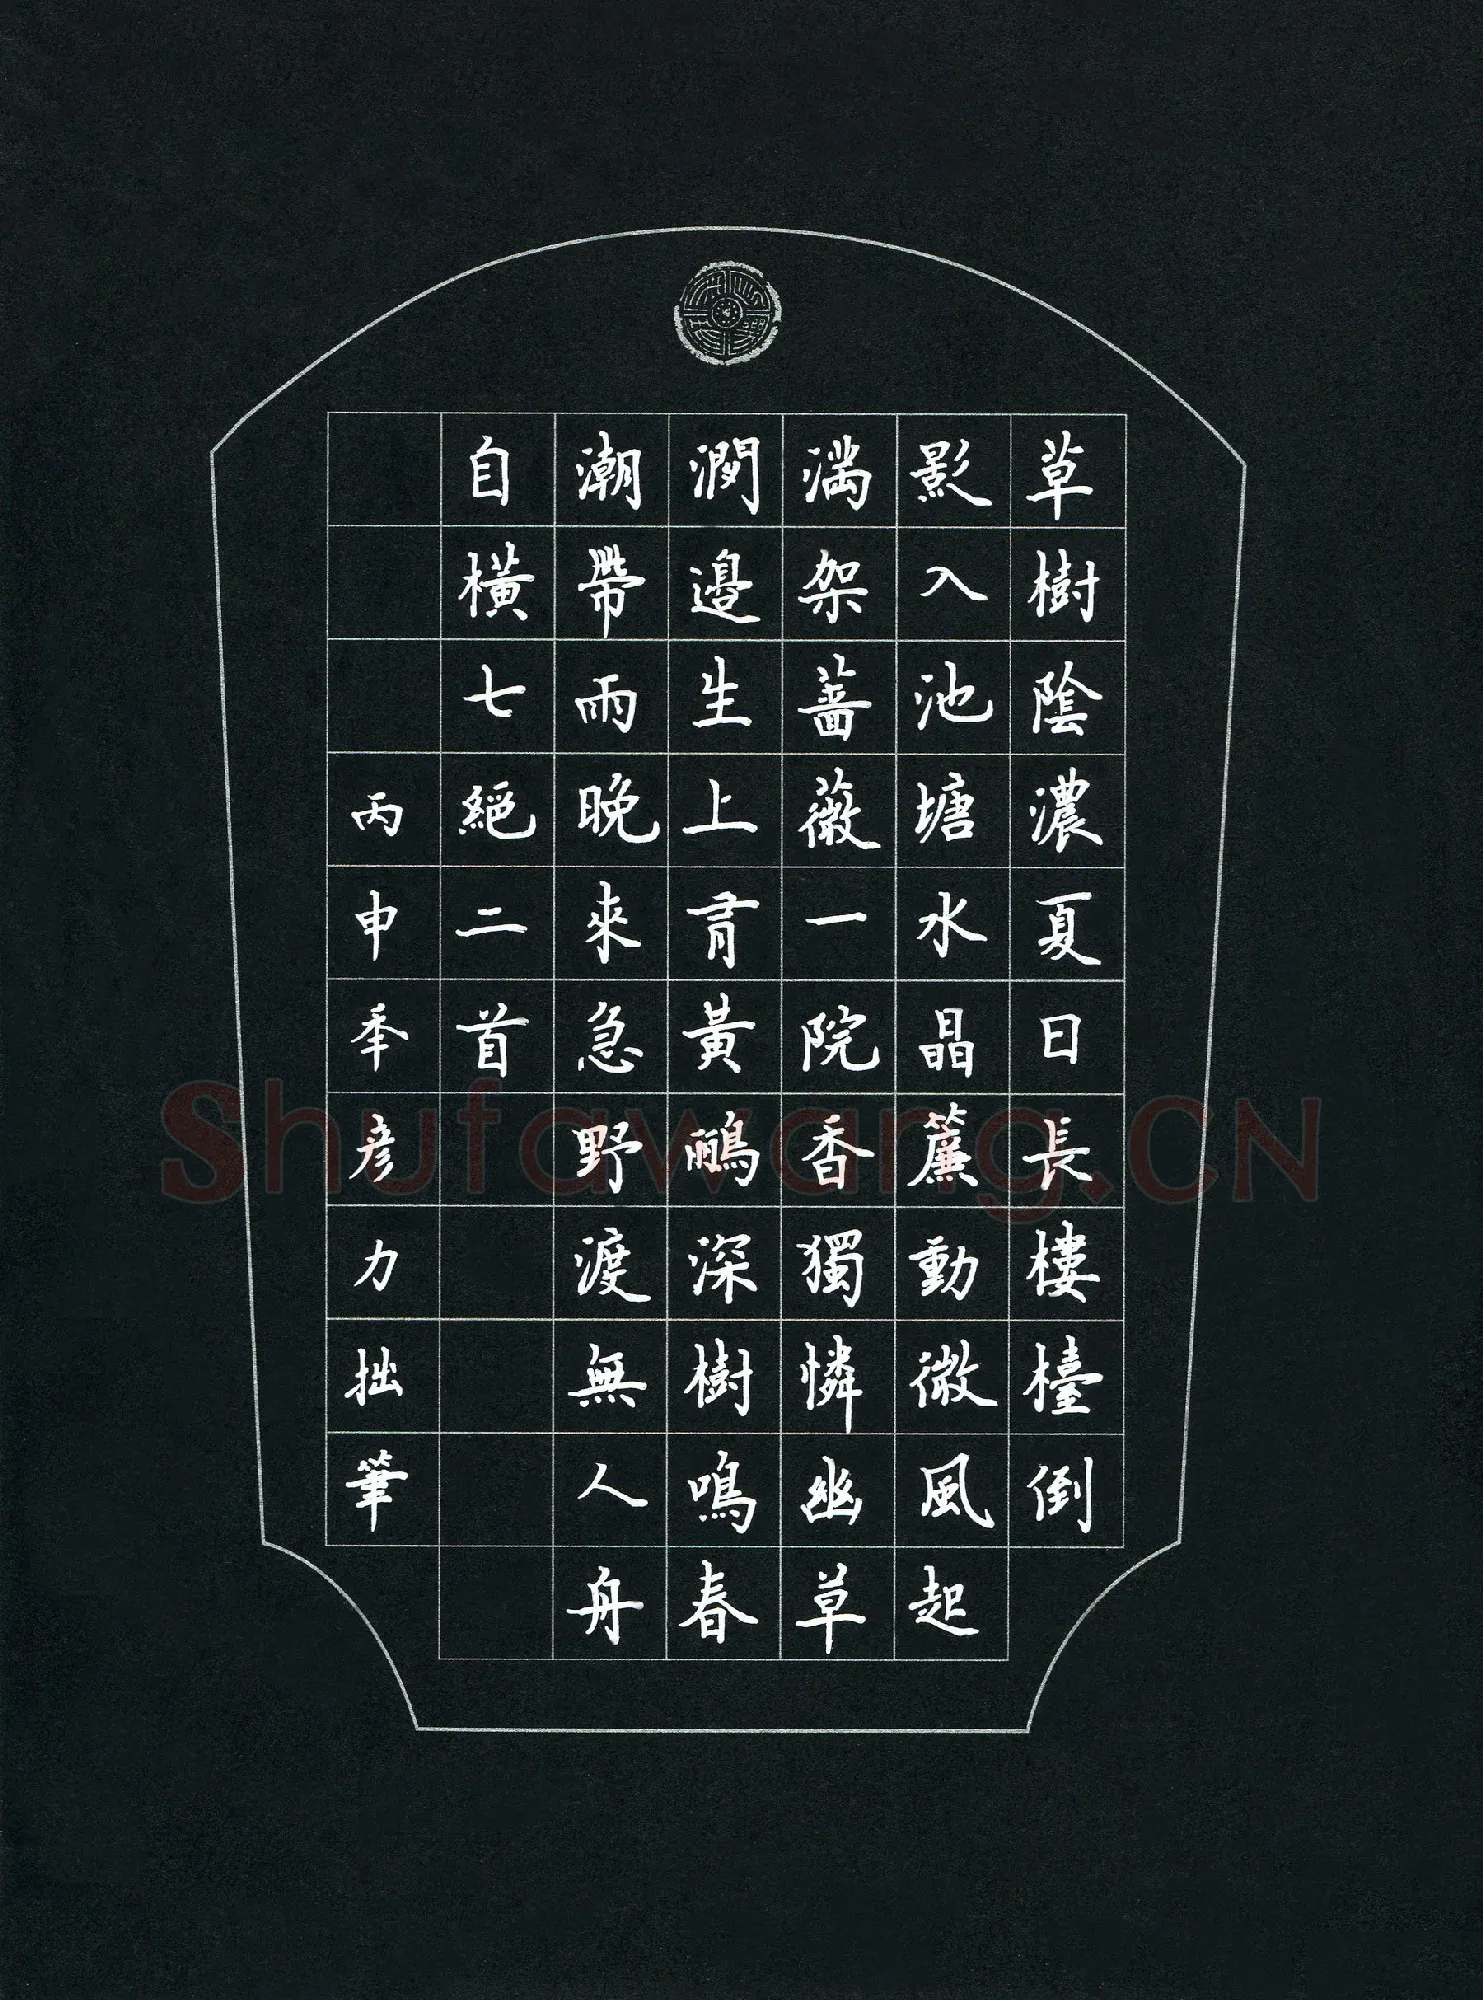 草樹陰濃夏日長樓檯倒
影入池塘水晶簾動微風起
滿架薔薇一院香獨憐幽草
澗邊生上有黃鸝深樹鳴春
潮帶雨晚來急野渡無人舟
自橫七絕二首
丙申年彥力拙筆
Shufawang.CN